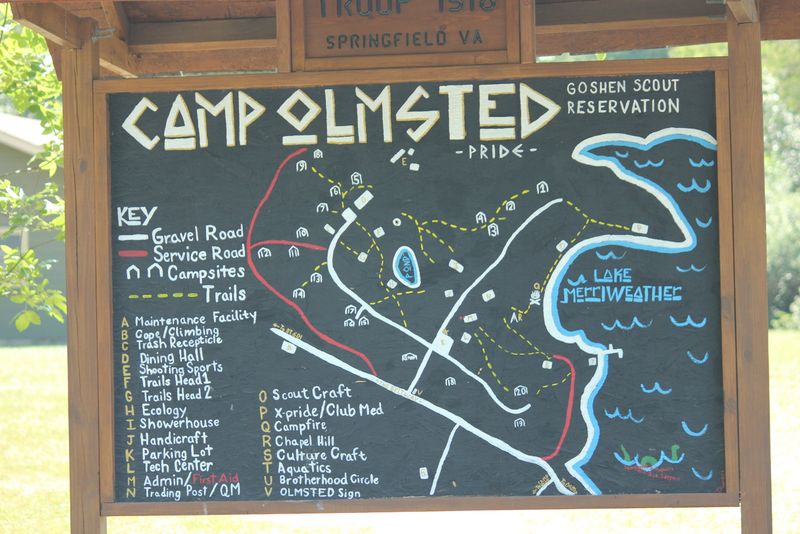 TROOP 1518
SPRINGFIELD VA
CAMP OLMSTED
-PRIDE-
GOSHEN SCOUT
RESERVATION
KEY
Gravel Road
Service Road
Campsites
Trails
A Maintenance Facility
B Cope/Climbing
C Trash Recepticle
D Dining Hall
E Shooting Sports
F Trails Head 1
G Trails Head 2
H Ecology
I Showerhouse
J Handicraft
K Parking Lot
L Tech Center
M Admin/First Aid
N Trading Post/QM
O Scout Craft
P X-pride/Club Med
Q Campfire
R Chapel Hill
S Culture Craft
T Aquatics
U Brotherhood Circle
V OLMSTED Sign
POND
LAKE
MERRIWEATHER